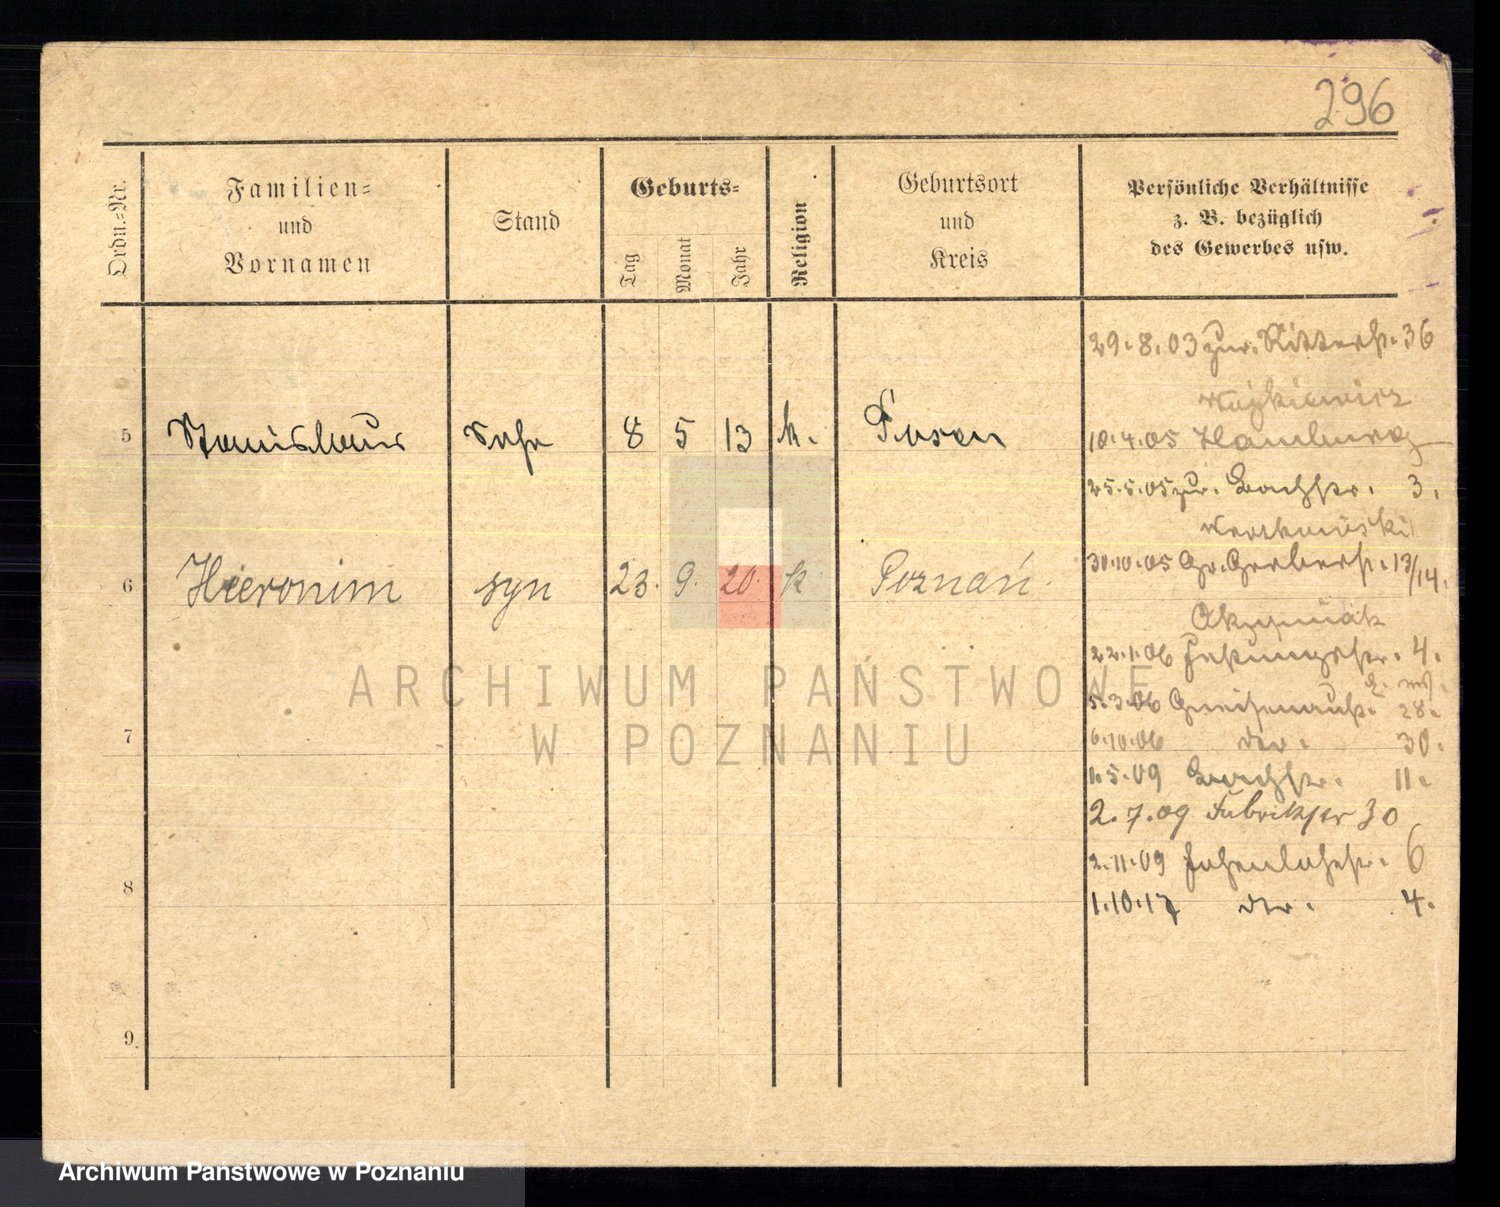 296
Ordn.-Nr.
Familien-
und
Vornamen
Stand
Geburts-
Tag
Monat
Jahr
Religion
Geburtsort
und
Kreis
Persönliche Verhältnisse
z. B. bezüglich
des Gewerbes usw.
29.8.03 zur. Ritterstr. 36
10.4.05 Hamburg
5 Stanislaus Sohn 8 5 13 k. Posen
25.5.05 zur. Bachstr. 3.
30.10.05 Gr. Gerberstr. 13/14.
6 Hieronim syn 23. 9. 20. k Poznań
22.1.06 Festungsstr. 4.
5.3.06 Gneisenaustr. 28.
7
6.10.06 30.
1.5.09 Bachstr. 11.
2.7.09 Fabrikstr 30
8
2.11.09 Hohenlohestr. 6
1.10.17 4.
9.
ARCHIWUM PAŃSTWOWE
W POZNANIU
Archiwum Państwowe w Poznaniu